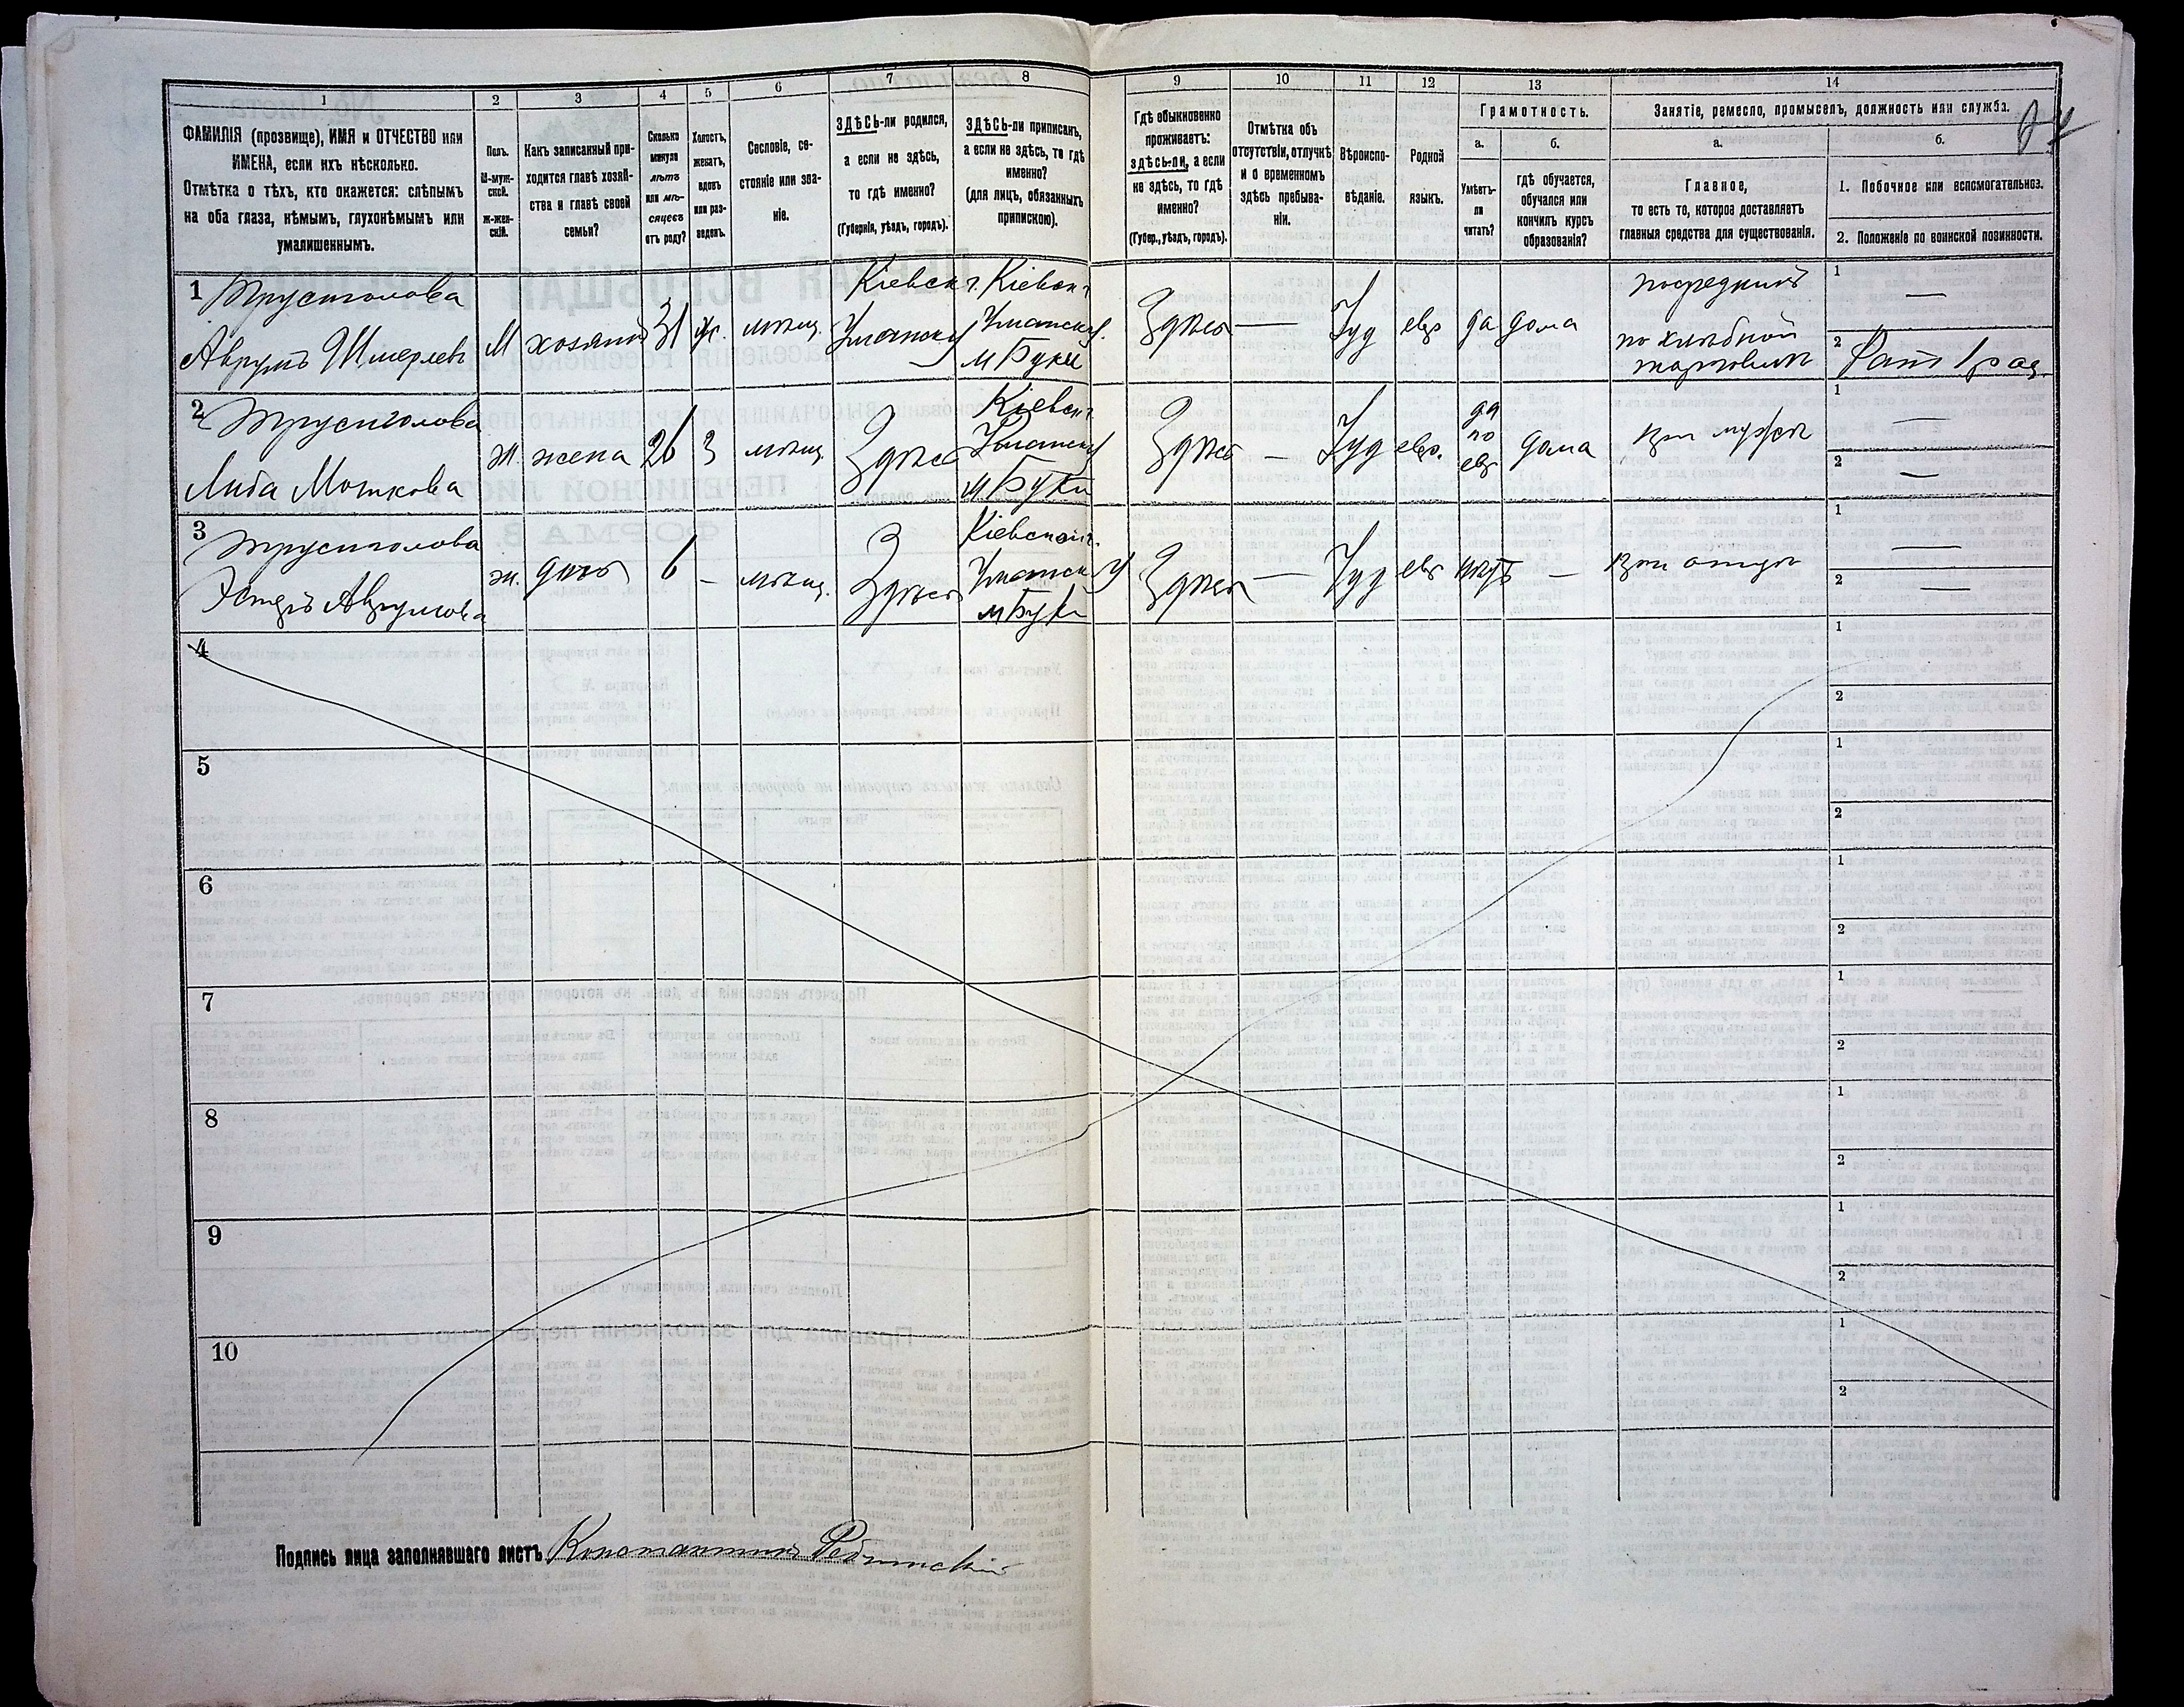 1
2
3
4
5
6
7
8
9
10
11
12
13
14
ФАМИЛІЯ (прозвище), ИМЯ и ОТЧЕСТВО или
ИМЕНА, если ихъ нѣсколько.
Отмѣтка о тѣхъ, кто окажется: слѣпымъ
на оба глаза, нѣмымъ, глухонѣмымъ или
умалишеннымъ.
Полъ.
М-муж-
ской.
Ж-жен-
скій.
Какъ записанный при-
ходится главѣ хозяй-
ства и главѣ своей
семьи?
Сколько
минуло
лѣтъ
или мѣ-
сяцевъ
отъ роду?
Холостъ,
женатъ,
вдовъ
или раз-
веденъ.
Сословіе, со-
стояніе или зва-
ніе.
ЗДѢСЬ-ли родился,
а если не здѣсь,
то гдѣ именно?
(Губернія, уѣздъ, городъ).
ЗДѢСЬ-ли приписанъ,
а если не здѣсь, то гдѣ
именно?
(для лицъ, обязанныхъ
припискою).
Гдѣ обыкновенно
проживаетъ:
здѣсь-ли, а если
не здѣсь, то гдѣ
именно?
(Губер., уѣздъ, городъ).
Отмѣтка объ
отсутствіи, отлучкѣ
и о временномъ
здѣсь пребыва-
ніи.
Вѣроиспо-
вѣданіе.
Родной
языкъ.
Грамотность.
а.
б.
Умѣетъ-
ли
читать?
гдѣ обучается,
обучался или
кончилъ курсъ
образованія?
Занятіе, ремесло, промыселъ, должность или служба.
а.
б.
Главное,
то есть то, которое доставляетъ
главныя средства для существованія.
1. Побочное или вспомогательное.
2. Положеніе по воинской повинности.
1 Трусиголова
Аврумъ Шмерлевъ
М
хозяинъ
31
ж.
мѣщ.
Кіевск г.
Уманск у
Кіевск г
Уманск у.
м Буки
Здѣсь
—
Іуд
евр
да
дома
посредникъ
по хлѣбной
торговлѣ
1 —
2 Рат 1 раз.
2 Трусиголова
Либа Мошкова
ж.
жена
26
З
мѣщ
Здѣсь
Кіевск г
Уманск у
м Буки
Здѣсь
—
Іуд
евр.
да
по
евр
дома
при мужѣ
1 —
2 —
3 Трусиголова
Эстеръ Аврумова
ж.
дочь
6
—
мѣщ.
Здѣсь
Кіевской г.
Уманск у
м Буки
Здѣсь
—
Іуд
евр
нѣтъ
—
при отцѣ
1 —
2 —
4
1
2
5
1
2
6
1
2
7
1
2
8
1
2
9
1
2
10
1
2
Подпись лица заполнявшаго листъ Константинъ